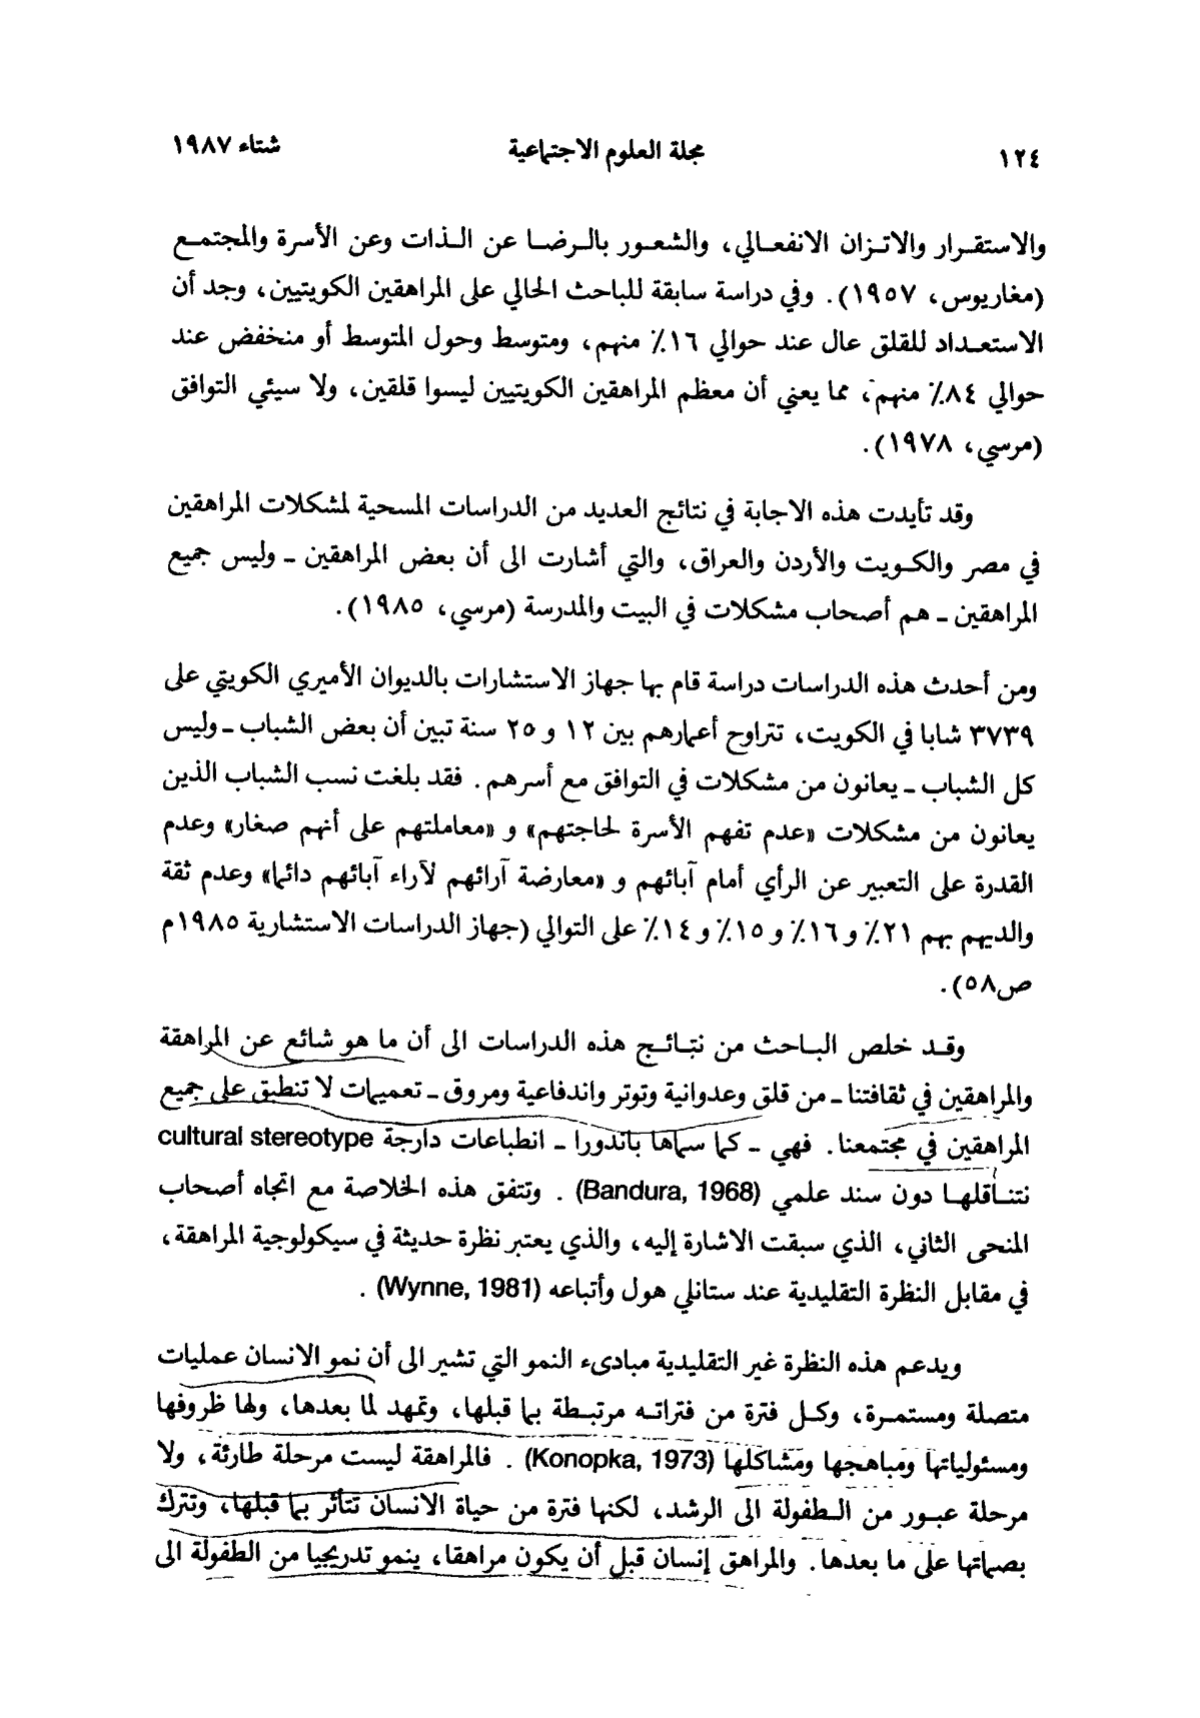 ١٢٤ مجلة العلوم الاجتماعية شتاء ١٩٨٧
والاستقرار والاتزان الانفعالي، والشعور بالرضا عن الذات وعن الأسرة والمجتمع
(مغاريوس، ١٩٥٧). وفي دراسة سابقة للباحث الحالي على المراهقين الكويتيين، وجد أن
الاستعداد للقلق عال عند حوالي ١٦٪ منهم، ومتوسط وحول المتوسط أو منخفض عند
حوالي ٨٤٪ منهم، مما يعني أن معظم المراهقين الكويتيين ليسوا قلقين، ولا سيئي التوافق
(مرسي، ١٩٧٨).
وقد تأيدت هذه الاجابة في نتائج العديد من الدراسات المسحية لمشكلات المراهقين
في مصر والكويت والأردن والعراق، والتي أشارت الى أن بعض المراهقين ـ وليس جميع
المراهقين ـ هم أصحاب مشكلات في البيت والمدرسة (مرسي، ١٩٨٥).
ومن أحدث هذه الدراسات دراسة قام بها جهاز الاستشارات بالديوان الأميري الكويتي على
٣٧٣٩ شابا في الكويت، تتراوح أعمارهم بين ١٢ و ٢٥ سنة تبين أن بعض الشباب ـ وليس
كل الشباب ـ يعانون من مشكلات في التوافق مع أسرهم. فقد بلغت نسب الشباب الذين
يعانون من مشكلات «عدم تفهم الأسرة لحاجتهم» و «معاملتهم على أنهم صغار» وعدم
القدرة على التعبير عن الرأي أمام آبائهم و «معارضة آرائهم لآراء آبائهم دائما» وعدم ثقة
والديهم بهم ٢١٪ و ١٦٪ و ١٥٪ و ١٤٪ على التوالي (جهاز الدراسات الاستشارية ١٩٨٥م
ص٥٨).
وقد خلص الباحث من نتائج هذه الدراسات الى أن ما هو شائع عن المراهقة
والمراهقين في ثقافتنا ـ من قلق وعدوانية وتوتر واندفاعية ومروق ـ تعميمات لا تنطبق على جميع
المراهقين في مجتمعنا. فهي ـ كما سماها باندورا ـ انطباعات دارجة cultural stereotype
نتناقلها دون سند علمي (Bandura, 1968) . وتتفق هذه الخلاصة مع اتجاه أصحاب
المنحى الثاني، الذي سبقت الاشارة إليه، والذي يعتبر نظرة حديثة في سيكولوجية المراهقة،
في مقابل النظرة التقليدية عند ستانلي هول وأتباعه (Wynne, 1981) .
ويدعم هذه النظرة غير التقليدية مبادىء النمو التي تشير الى أن نمو الانسان عمليات
متصلة ومستمرة، وكل فترة من فتراته مرتبطة بما قبلها، وتمهد لما بعدها، ولها ظروفها
ومسئولياتها ومباهجها ومشاكلها (Konopka, 1973) . فالمراهقة ليست مرحلة طارئة، ولا
مرحلة عبور من الطفولة الى الرشد، لكنها فترة من حياة الانسان تتأثر بما قبلها، وتترك
بصماتها على ما بعدها. والمراهق إنسان قبل أن يكون مراهقا، ينمو تدريجيا من الطفولة الى